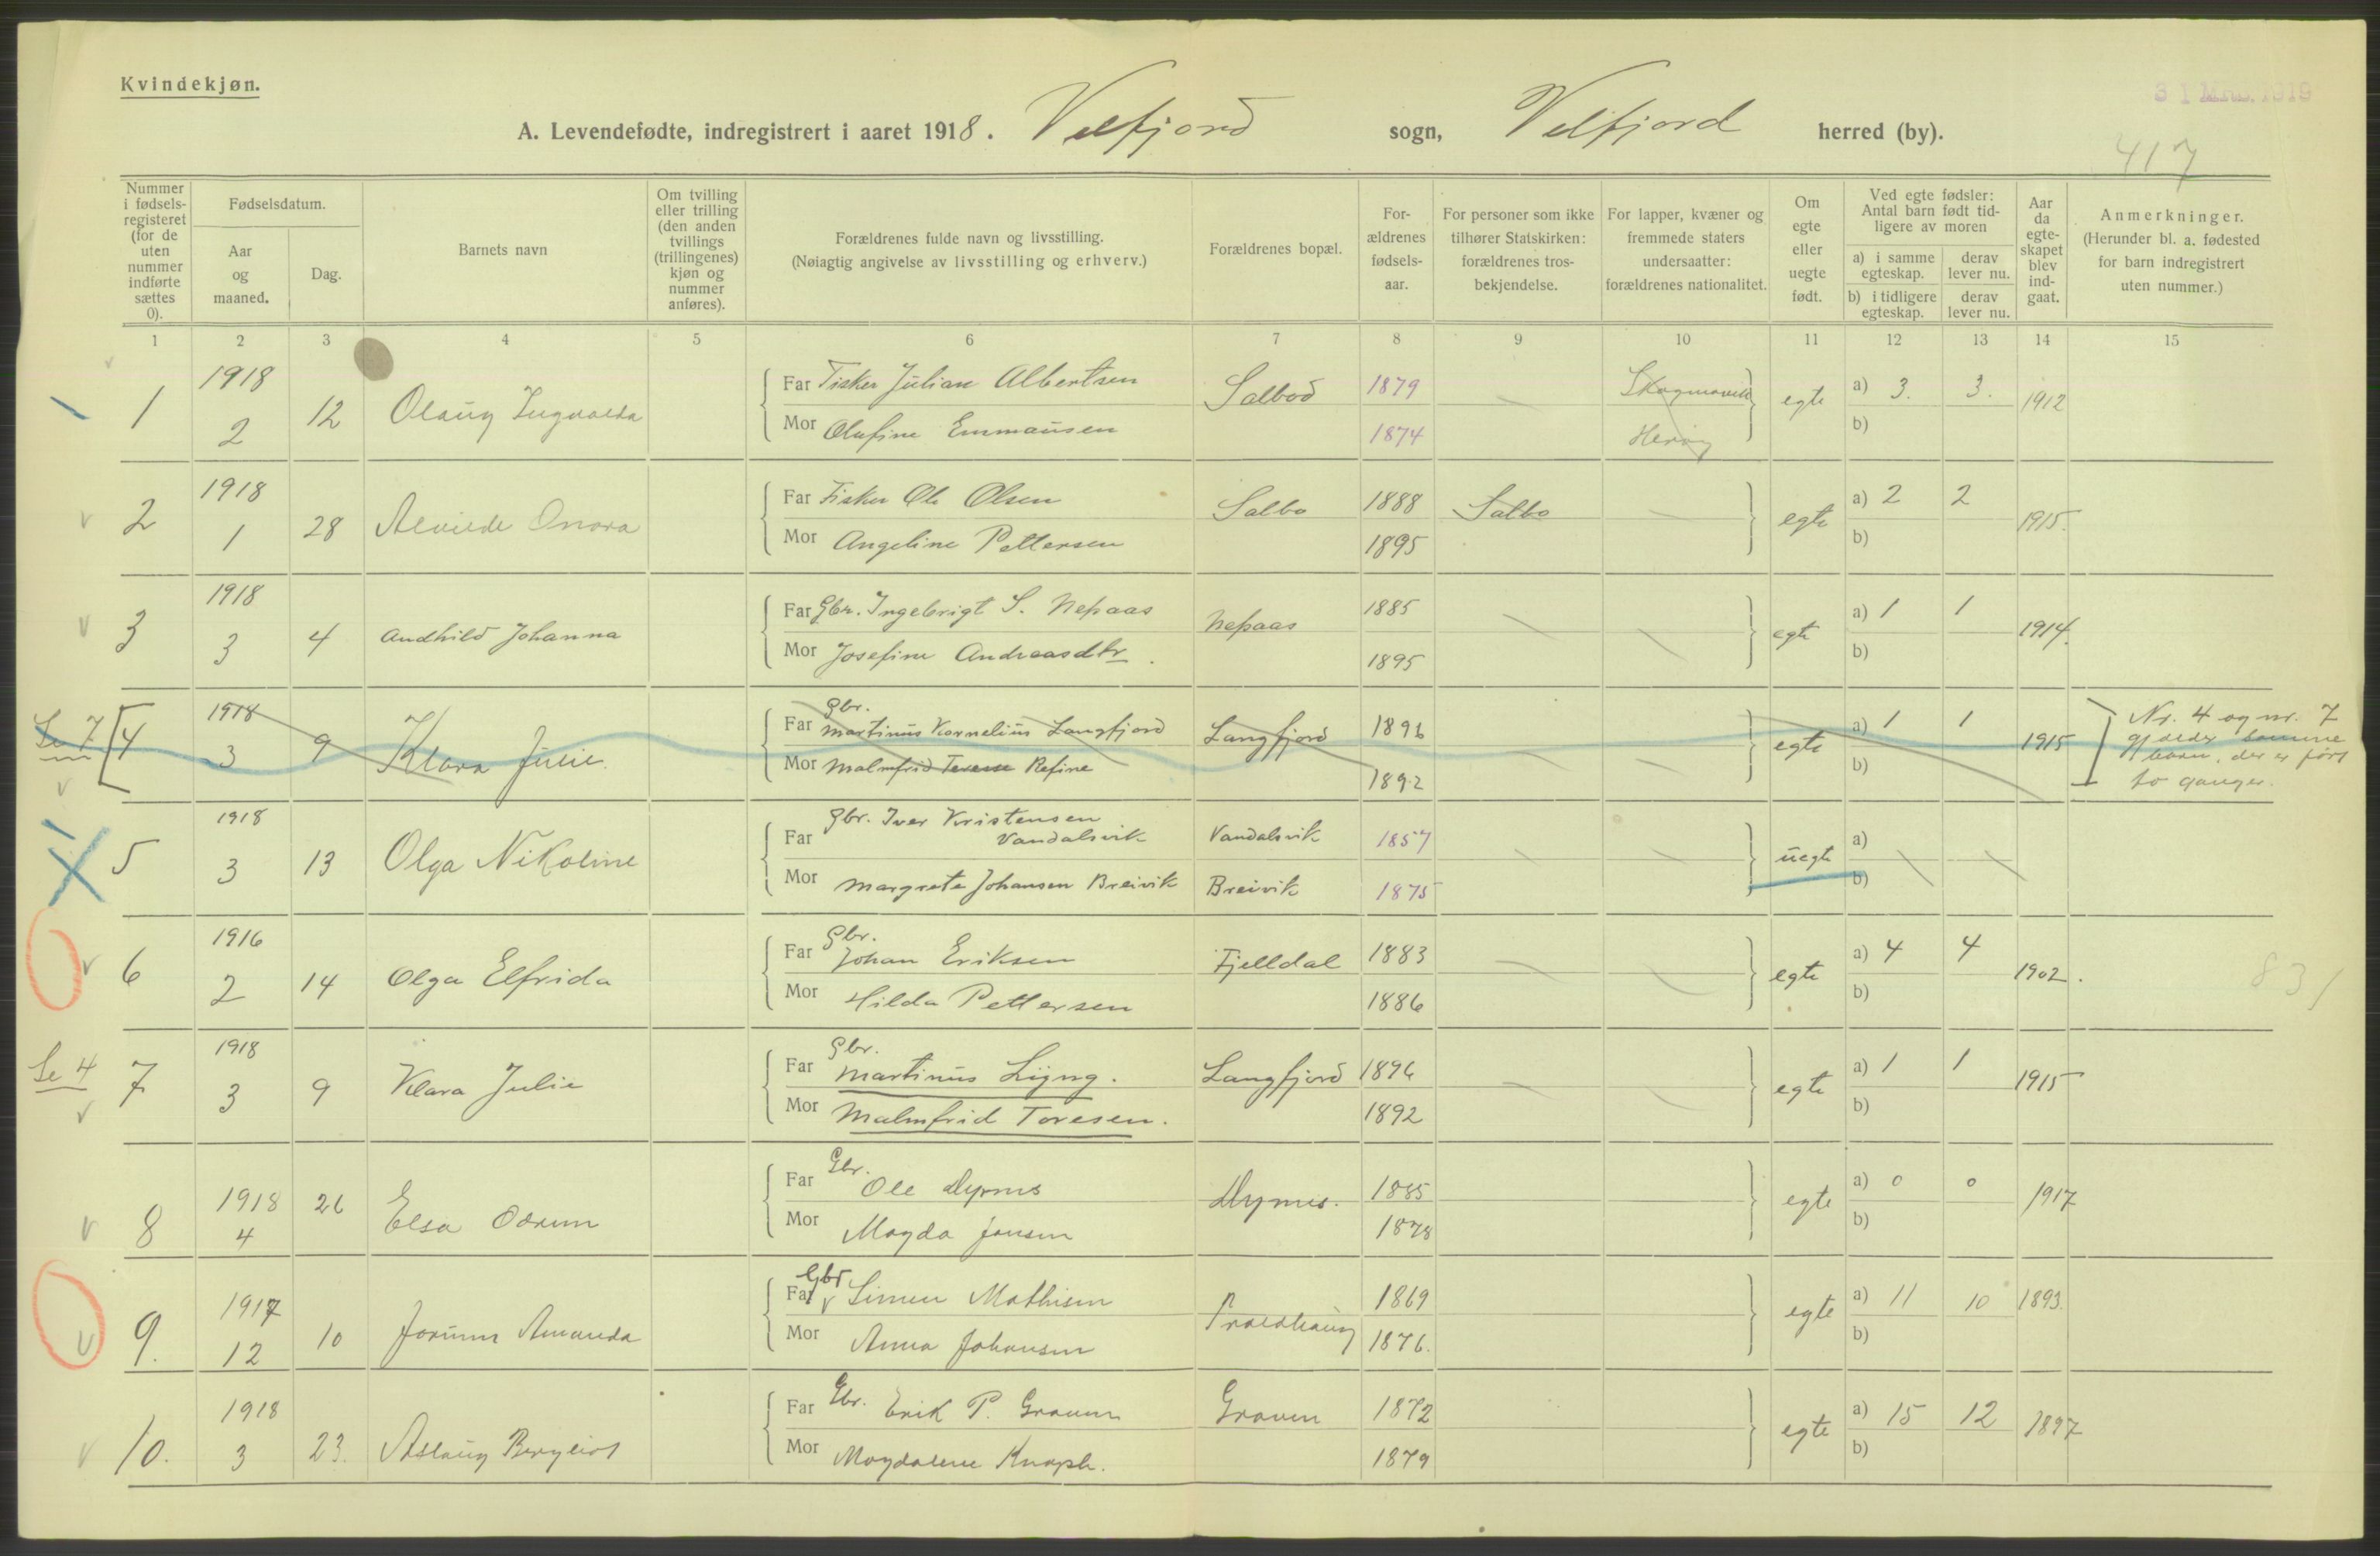 Kvindekjøn.
31 MRS. 1919
A. Levendefødte, indregistrert i aaret 1918. Velfjord sogn, Velfjord herred (by).
417
Nummer i fødsels-registeret (for de uten nummer indførte sættes 0).
Fødselsdatum.
Aar og maaned.
Dag.
Barnets navn
Om tvilling eller trilling (den anden tvillings (trillingenes) kjøn og nummer anføres).
Forældrenes fulde navn og livsstilling.
(Nøiagtig angivelse av livsstilling og erhverv.)
Forældrenes bopæl.
For-ældrenes fødsels-aar.
For personer som ikke tilhører Statskirken: forældrenes tros-bekjendelse.
For lapper, kvæner og fremmede staters undersaatter: forældrenes nationalitet.
Om egte eller uegte født.
Ved egte fødsler: Antal barn født tid-ligere av moren
a) i samme egteskap.
derav lever nu.
b) i tidligere egteskap.
derav lever nu.
Aar da egte-skapet blev ind-gaat.
Anmerkninger.
(Herunder bl. a. fødested for barn indregistrert uten nummer.)
1 2 3 4 5 6 7 8 9 10 11 12 13 14 15
1 1918 2 12 Olaug Ingvalda
Far Fisker Julian Albertsen Salbod 1879 Skogmovik egte a) 3. 3. 1912
Mor Olufine Emmausen 1874 Herøy b)
2 1918 1 28 Alvilde Onora
Far Fisker Ole Olsen Salbo 1888 Salbo egte a) 2 2 1915.
Mor Angeline Pettersen 1895 b)
3 1918 3 4 Andhild Johanna
Far Gbr. Ingebrigt S. Nepaas Nepaas 1885 egte a) 1 1 1914.
Mor Josefine Andreasdtr. 1895 b)
Se 7 4 1918 3 9 Klara Julie.
Far Gbr. Martinus Kornelius Langfjord Langfjord 1896 egte a) 1 1 1915
Mor Malmfrid Terese Refine 1892 b)
Nr. 4 og nr. 7
gjælder samme
barn, der er ført
to ganger.
5 1918 3 13 Olga Nikoline
Far Gbr. Iver Kristensen Vandalsvik Vandalsvik 1857 uegte a)
Mor Margrete Johansen Breivik Breivik 1875 b)
6 1916 2 14 Olga Elfrida
Far Gbr. Johan Eriksen Fjelldal 1883 egte a) 4 4 1902.
Mor Hilda Pettersen 1886 b)
831
Se 4 7 1918 3 9 Klara Julie
Far Gbr. Martinus Ligng. Langfjord 1896 egte a) 1 1 1915
Mor Malmfrid Toresen. 1892 b)
8 1918 4 26 Elsa Odrun
Far Gbr. Ole Myrnes Myrnes. 1885 egte a) 0 0 1917
Mor Magda Jensen 1878 b)
9. 1917 12 10 Jorunn Amanda
Far Gbr Simen Mathisen 1869 egte a) 11 10 1893.
Mor Anna Johansen 1876. b)
10. 1918 3 23. Aslaug Bergliot
Far Gbr. Erik P. Graven Graven 1872 egte a) 15 12 1897
Mor Magdalene Knoph. 1879 b)